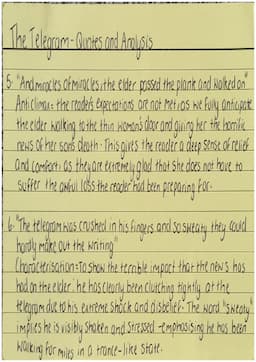 The Telegram - Quotes and Analysis
5. "And miracles of miracles, the elder passed the plank and walked on"
Anticlimax - the reader's expectations are not met, as we fully anticipate
the elder walking to the thin woman's door and giving her the horrific
news of her son's death. This gives the reader a deep sense of relief
and comfort as they are extremely glad that she does not have to
suffer the awful loss the reader had been preparing for.
6. "The telegram was crushed in his fingers and so sweaty they could
hardly make out the writing"
Characterisation - To show the terrible impact that the news has
had on the elder. He has clearly been clutching tightly at the
telegram due to his extreme shock and disbelief. The word "sweaty"
implies he is visibly shaken and stressed - emphasising he has been
walking for miles in a trance-like state.